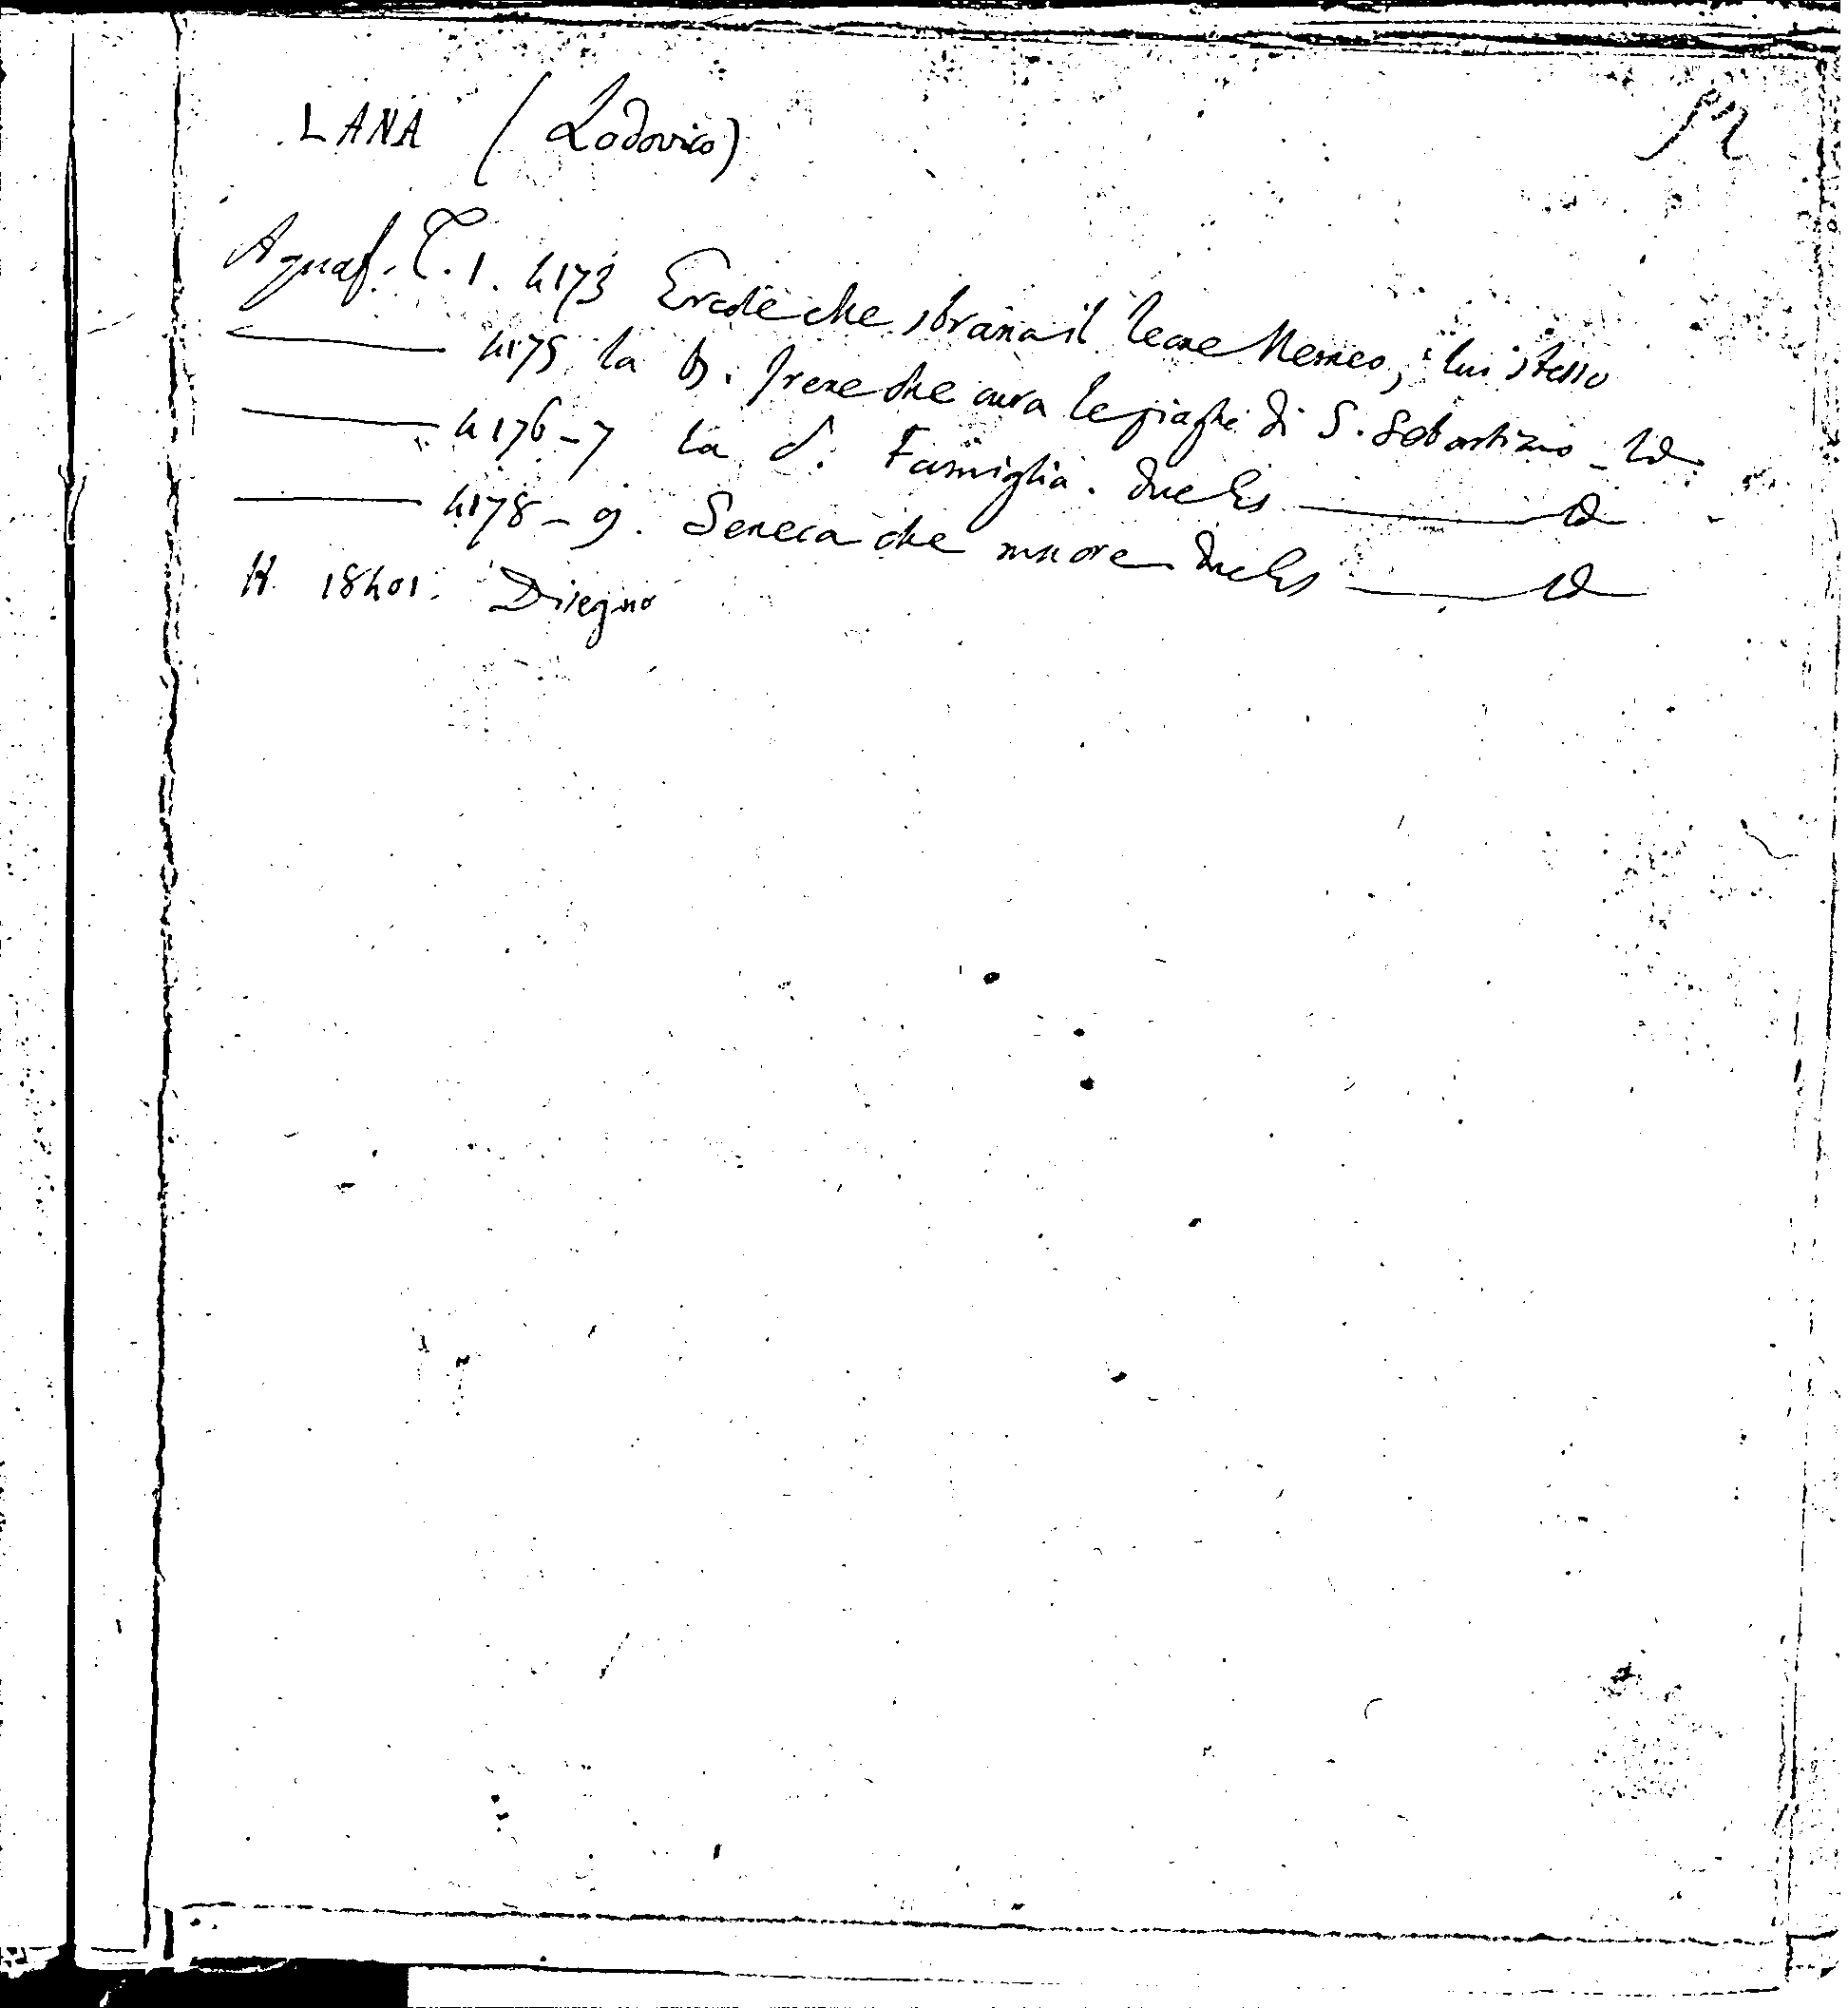 LANA (Lodovico)
T. 1. 4173 Ercole che sbrana il leone Nemeo, lui stesso
4175 la B. Irene che cura le piaghe di S. Sebastiano - Id.
4176-7 la S. Famiglia. due Es Id
4178-9. Seneca che muore due Es Id
H 18401. Disegno